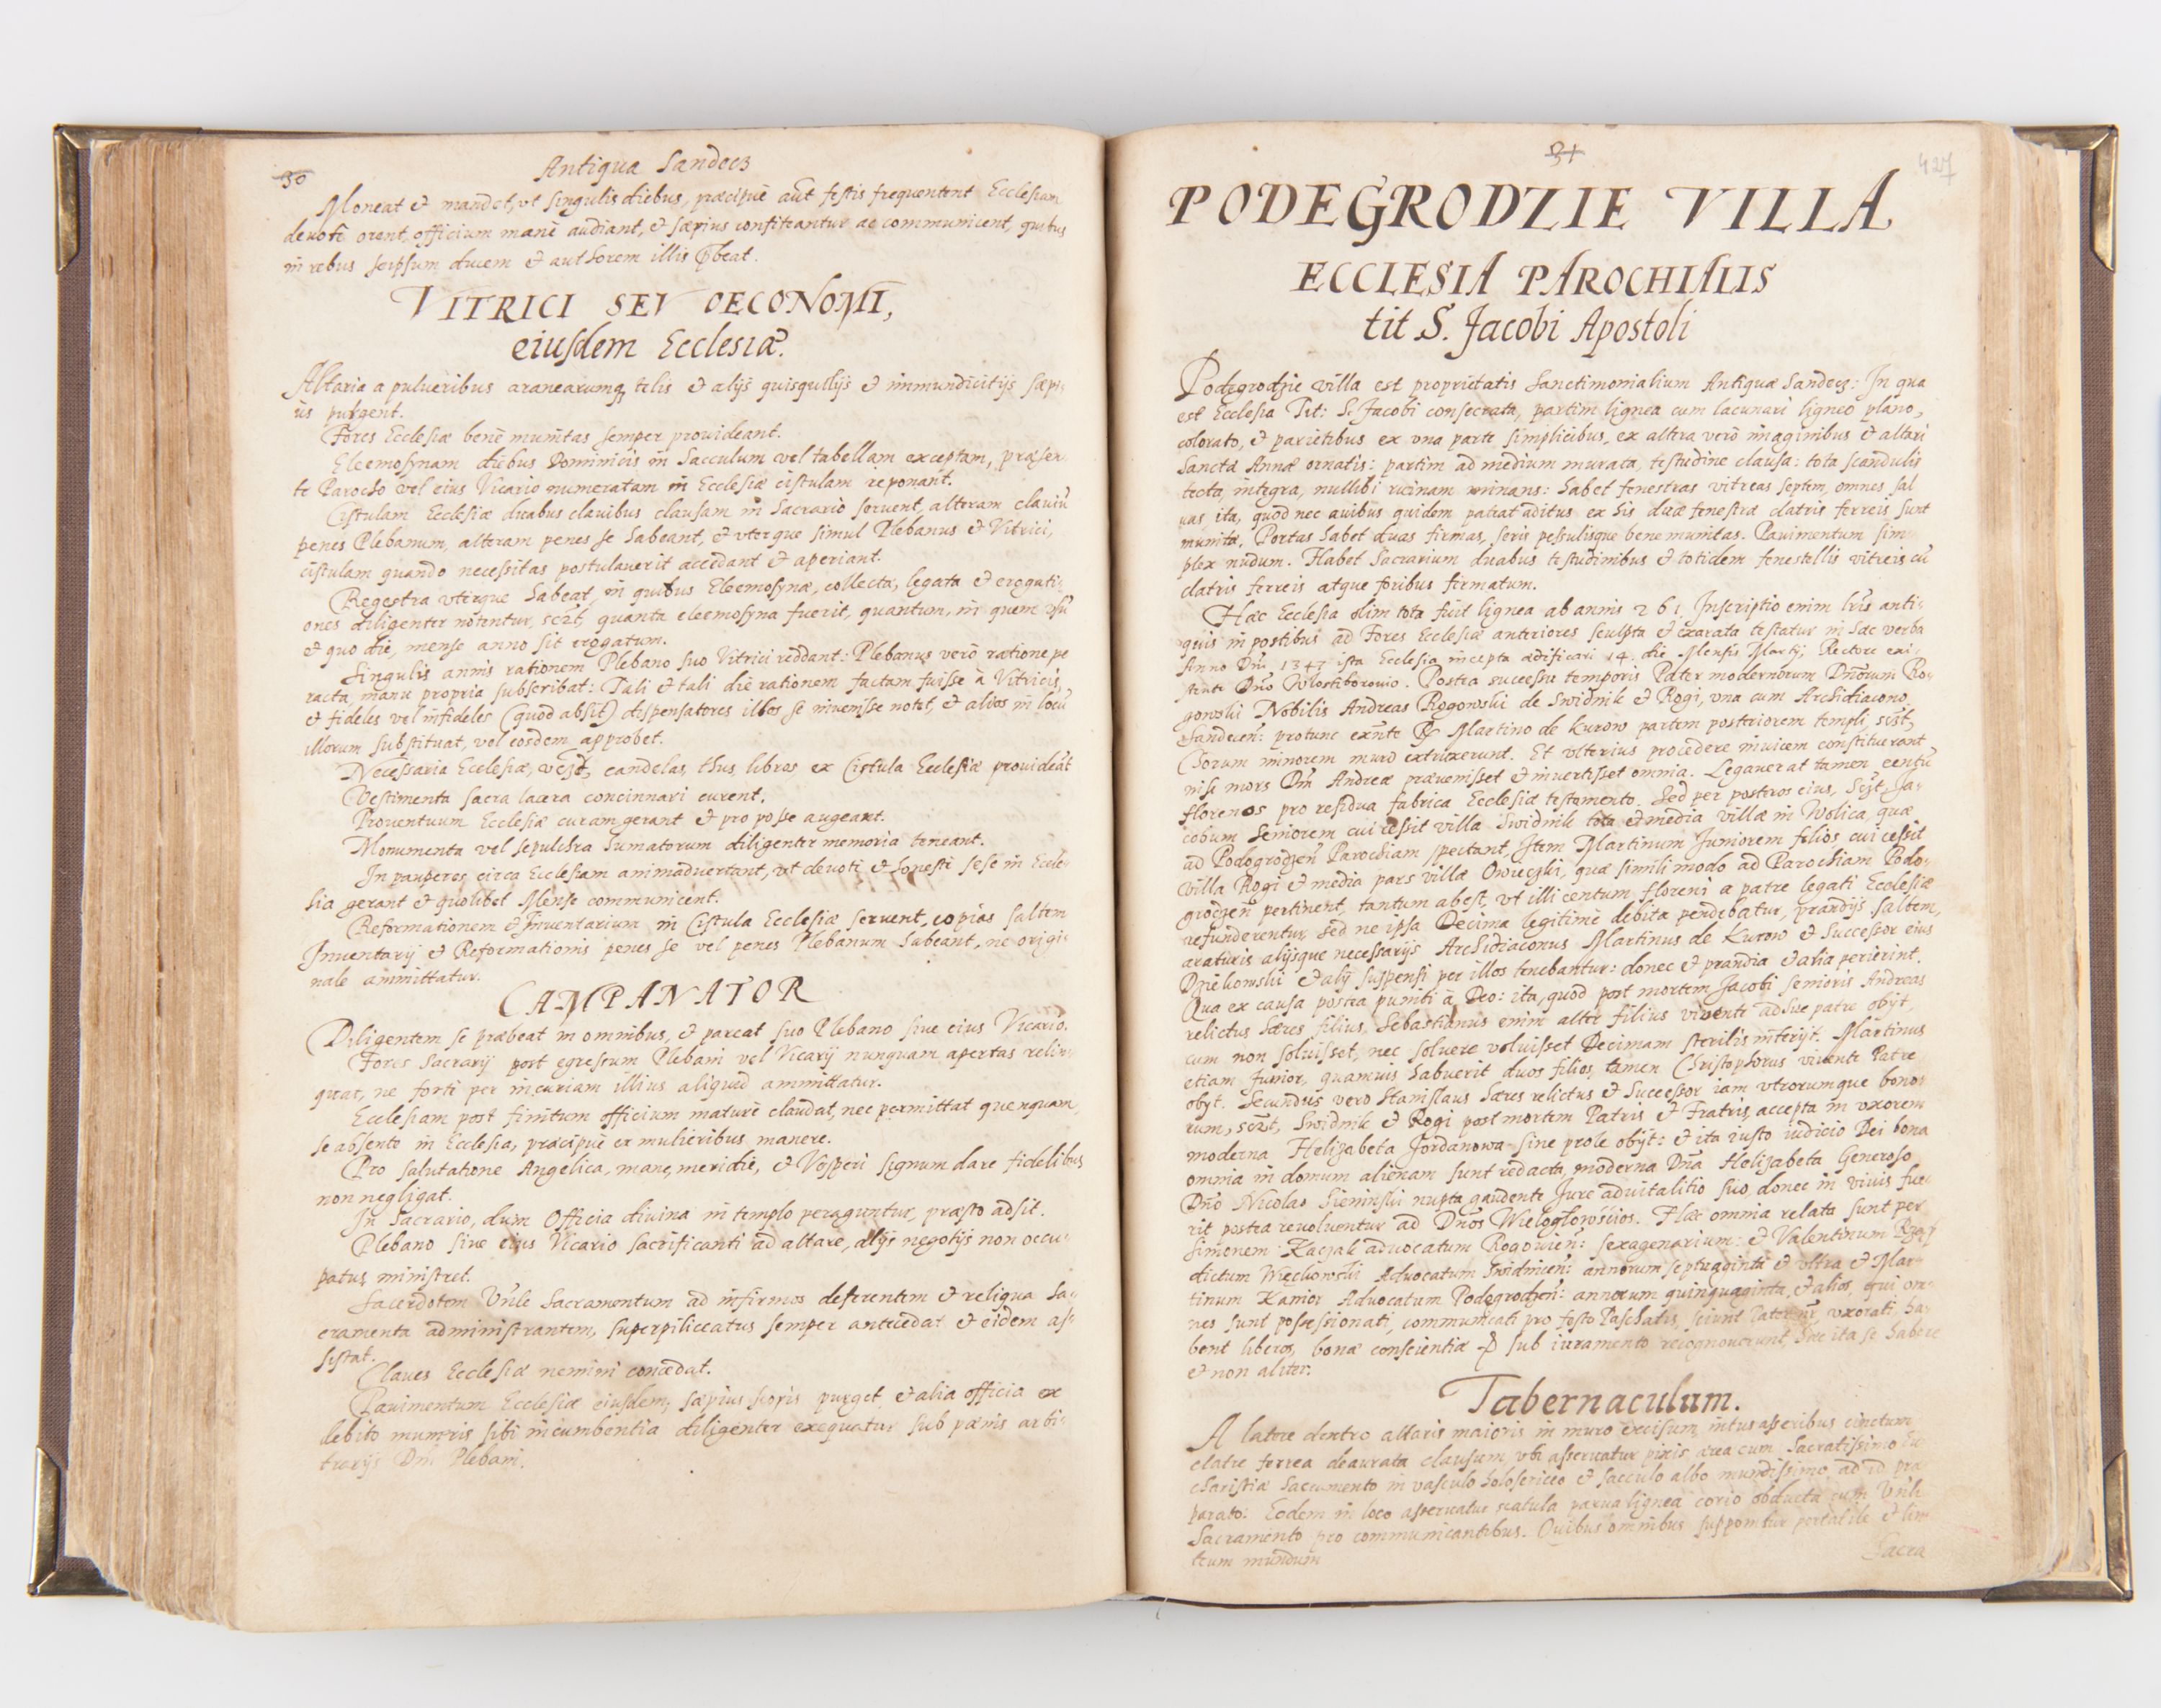 30
Antiqua Sandecz
Moneat et mandet, vt singulis diebus, præcipuè aut festis frequentent Ecclesiam
deuotè orent, officium manè audiant, et sæpius confiteantur ac communicent, quibus
in rebus seipsum ducem et authorem illis præbeat.
VITRICI SEV OECONOMI,
eiusdem Ecclesiæ.
Altaria a pulueribus aranearumq telis et alijs quisquilijs et immundicitijs sæpi-
ùs purgent.
Fores Ecclesiæ benè munitas semper prouideant.
Eleemosynam diebus Dominicis in Sacculum vel tabellam exceptam, præsen
te Parocho vel eius Vicario numeratam in Ecclesiæ cistulam reponant.
Cistulam Ecclesiæ duabus clauibus clausam in Sacrario seruent, alteram clauiũ
penes Plebanum, alteram penes se habeant, et vterque simul Plebanus et Vitrici,
cistulam quando necessitas postulauerit accedant et aperiant.
Regestra vterque habeat, in quibus Eleemosynæ, collecta, legata et erogati-
ones diligenter notentur, sczt, quanta eleemosyna fuerit, quantum, in quem vsũ
et quo die, mense anno sit erogatum.
Singulis annis rationem Plebano suo Vitrici reddant: Plebanus verò ratione pe
racta, manu propria subscribat: Tali et tali die rationem factam fuisse à Vitricis,
et fideles vel infideles (quod absit) dispensatores illos se inuenisse notet, et alios in locũ
illorum substituat, vel eosdem approbet.
Necessaria Ecclesiæ, vczt, candelas, thus, libros ex Cistula Ecclesiæ prouideãt
Vestimenta sacra lacera concinnari curent.
Prouentuum Ecclesiæ curam gerant et pro posse augeant.
Monumenta vel sepulchra humatorum diligenter memoria teneant.
In pauperes circa Ecclesiam animaduertant, vt deuoti et honesti sese in Eccle-
sia gerant et quolibet Mense communicent.
Reformationem et Inuentarium in Cistula Ecclesiæ seruent, copias saltem
Inuentarij et Reformationis penes se vel penes Plebanum habeant, ne origi-
nale ammittatur.
CAMPANATOR
Diligentem se præbeat in omnibus, et pareat suo Plebano siue eius Vicario.
Fores Sacrarij post egressum Plebani vel Vicarij nunquam apertas relin-
quat, ne fortè per incuriam illius aliquid ammittatur.
Ecclesiam post finitum officium maturè claudat, nec permittat quenquam,
se absente in Ecclesia, præcipuè ex mulieribus manere.
Pro salutatione Angelica, mane, meridie, et Vesperi signum dare fidelibus
non negligat.
In Sacrario, dum Officia diuina in templo peraguntur, præsto adsit.
Plebano siue eius Vicario sacrificanti ad altare, alijs negotijs non occu-
patus ministret.
Sacerdotem Vnłe Sacramentum ad infirmos deferentem et reliqua Sa-
cramenta administrantem, superpiliceatus semper antecedat et eidem as-
sistat.
Claues Ecclesiæ nemini concedat.
Pauimentum Ecclesiæ eiusdem, sæpius scopis purget, et alia officia ex
debito muneris sibi incumbentia diligenter exequatur sub pænis arbi-
trarijs Dni Plebani.
31
427
PODEGRODZIE VILLA
ECCLESIA PAROCHIALIS
tit S. Jacobi Apostoli
Podegrodzie villa est proprietatis Sanctimonialium Antiquæ Sandecz: In qua
est Ecclesia Tit: S. Jacobi consecrata, partim lignea cum lacunari ligneo plano,
colorato, et parietibus ex vna parte simplicibus, ex altera verò imaginibus et altari
Sanctæ Annæ ornatis: partim ad medium murata, testudine clausa: tota scandulis
tecta, integra, nullibi ruinam minans: habet fenestras vitreas septem, omnes sal
uas ita, quòd nec auibus quidem pateat aditus ex his duæ fenestræ clatris ferreis sunt
munitæ. Portas habet duas firmas, seris pessulisque bene munitas. Pauimentum sim
plex nudum. Habet Sacrarium duabus testudinibus et totidem fenestellis vitreis cũ
clatris ferreis atque foribus firmatum.
Hæc Ecclesia olim tota fuit lignea ab annis 261 Inscriptio enim lris anti-
quis in postibus ad Fores Ecclesiæ anteriores sculpta et exarata testatur in hæc verba
Anno Dni 1347 ista Ecclesia incepta ædificari 14. die Mensis Martij, Rectore exi-
stente Dno Wlostiborouio. Postea successu temporis Pater modernorum Dnorum Ro-
gowski Nobilis Andreas Rogowski de Swidnik et Rogi, vna cum Archidiacono
Sandecen: protunc exnte Martino de Kurow partem posteriorem templi, sczt,
Chorum minorem muro extruxerunt. Et vlterius procedere inuicem constituerant
nisi mors Dni Andreæ præuenisset et inuertisset omnia. Legauerat tamen centũ
florenos pro residua fabrica Ecclesiæ testamento. Sed per posteros eius, Sczt, Ja-
cobum Seniorem cui cessit villa Swidnik tota et media villæ in Wolica, quæ
ad Podogrodzen Parochiam spectant, Item Martinum Juniorem filios, cui cessit
villa Rogi et media pars villæ Owieczki, quæ simili modo ad Parochiam Podo-
grodzen pertinent, tantum abest, vt illi centum floreni a patre legati Ecclesiæ
refunderentur, sed ne ipsa Decima legitimè debita pendebatur, prandijs saltem,
araturis alijsque necessarijs Archidiaconus Martinus de Kurow et Successor eius
Dzickowski et alij suspensi per illos tenebantur: donec et prandia et alia perierint.
Qua ex causa postea puniti à Deo: ita, quòd post mortem Jacobi Senioris Andreas
relictus hæres filius, Sebastianus enim alter filius viuente adhuc patre obijt,
cum non soluisset, nec soluere voluisset Decimam sterilis interijt. Martinus
etiam Junior, quamuis habuerit duos filios, tamen Christophorus viuente Patre
obijt. Secundus vero Stanislaus hæres relictus et Successor iam vtrorumque bono-
rum, sczt, Swidnik et Rogi post mortem Patris et Fratris, accepta in vxorem
moderna Helizabeta Jordanowa sine prole obijt: et ita iusto iudicio Dei bona
omnia in domum alienam sunt redacta, moderna Dna Helizabeta Generoso
Dno Nicolao Sieninski nupta, gaudente Jure aduitalitio suo, donec in viuis fue-
rit postea reuoluentur ad Dnos Wieloglowskios. Hæc omnia relata sunt per
Simonem Kaczak aduocatum Rogouien: sexagenarium: et Valentinum
dictum Więckowski Aduocatum Swidnicen: annorum septuaginta et vltra et Mar-
tinum Kanior Aduocatum Podegrodzen: annorum quinquaginta, et alios, qui om-
nes sunt possessionati, communicati pro festo Paschatis, sciunt Pater nr, vxorati, ha-
bent liberos, bonæ conscientiæ sub iuramento recognouerunt, hæc ita se habere
et non aliter.
Tabernaculum.
A latere dextro altaris maioris in muro excisum, intus asseribus cinctum
clatre ferrea deaurata clausum, vbi asseruatur pixis ærea cum Sacratissimo Eu
charistiæ Sacramento in vasculo holosericeo et sacculo albo mundissimo ad id præ
parato. Eodem in loco asseruatur scatula parua lignea corio obducta cum Vnłi
Sacramento pro communicantibus. Quibus omnibus supponitur portatile et lin
teum mundum
Sacra